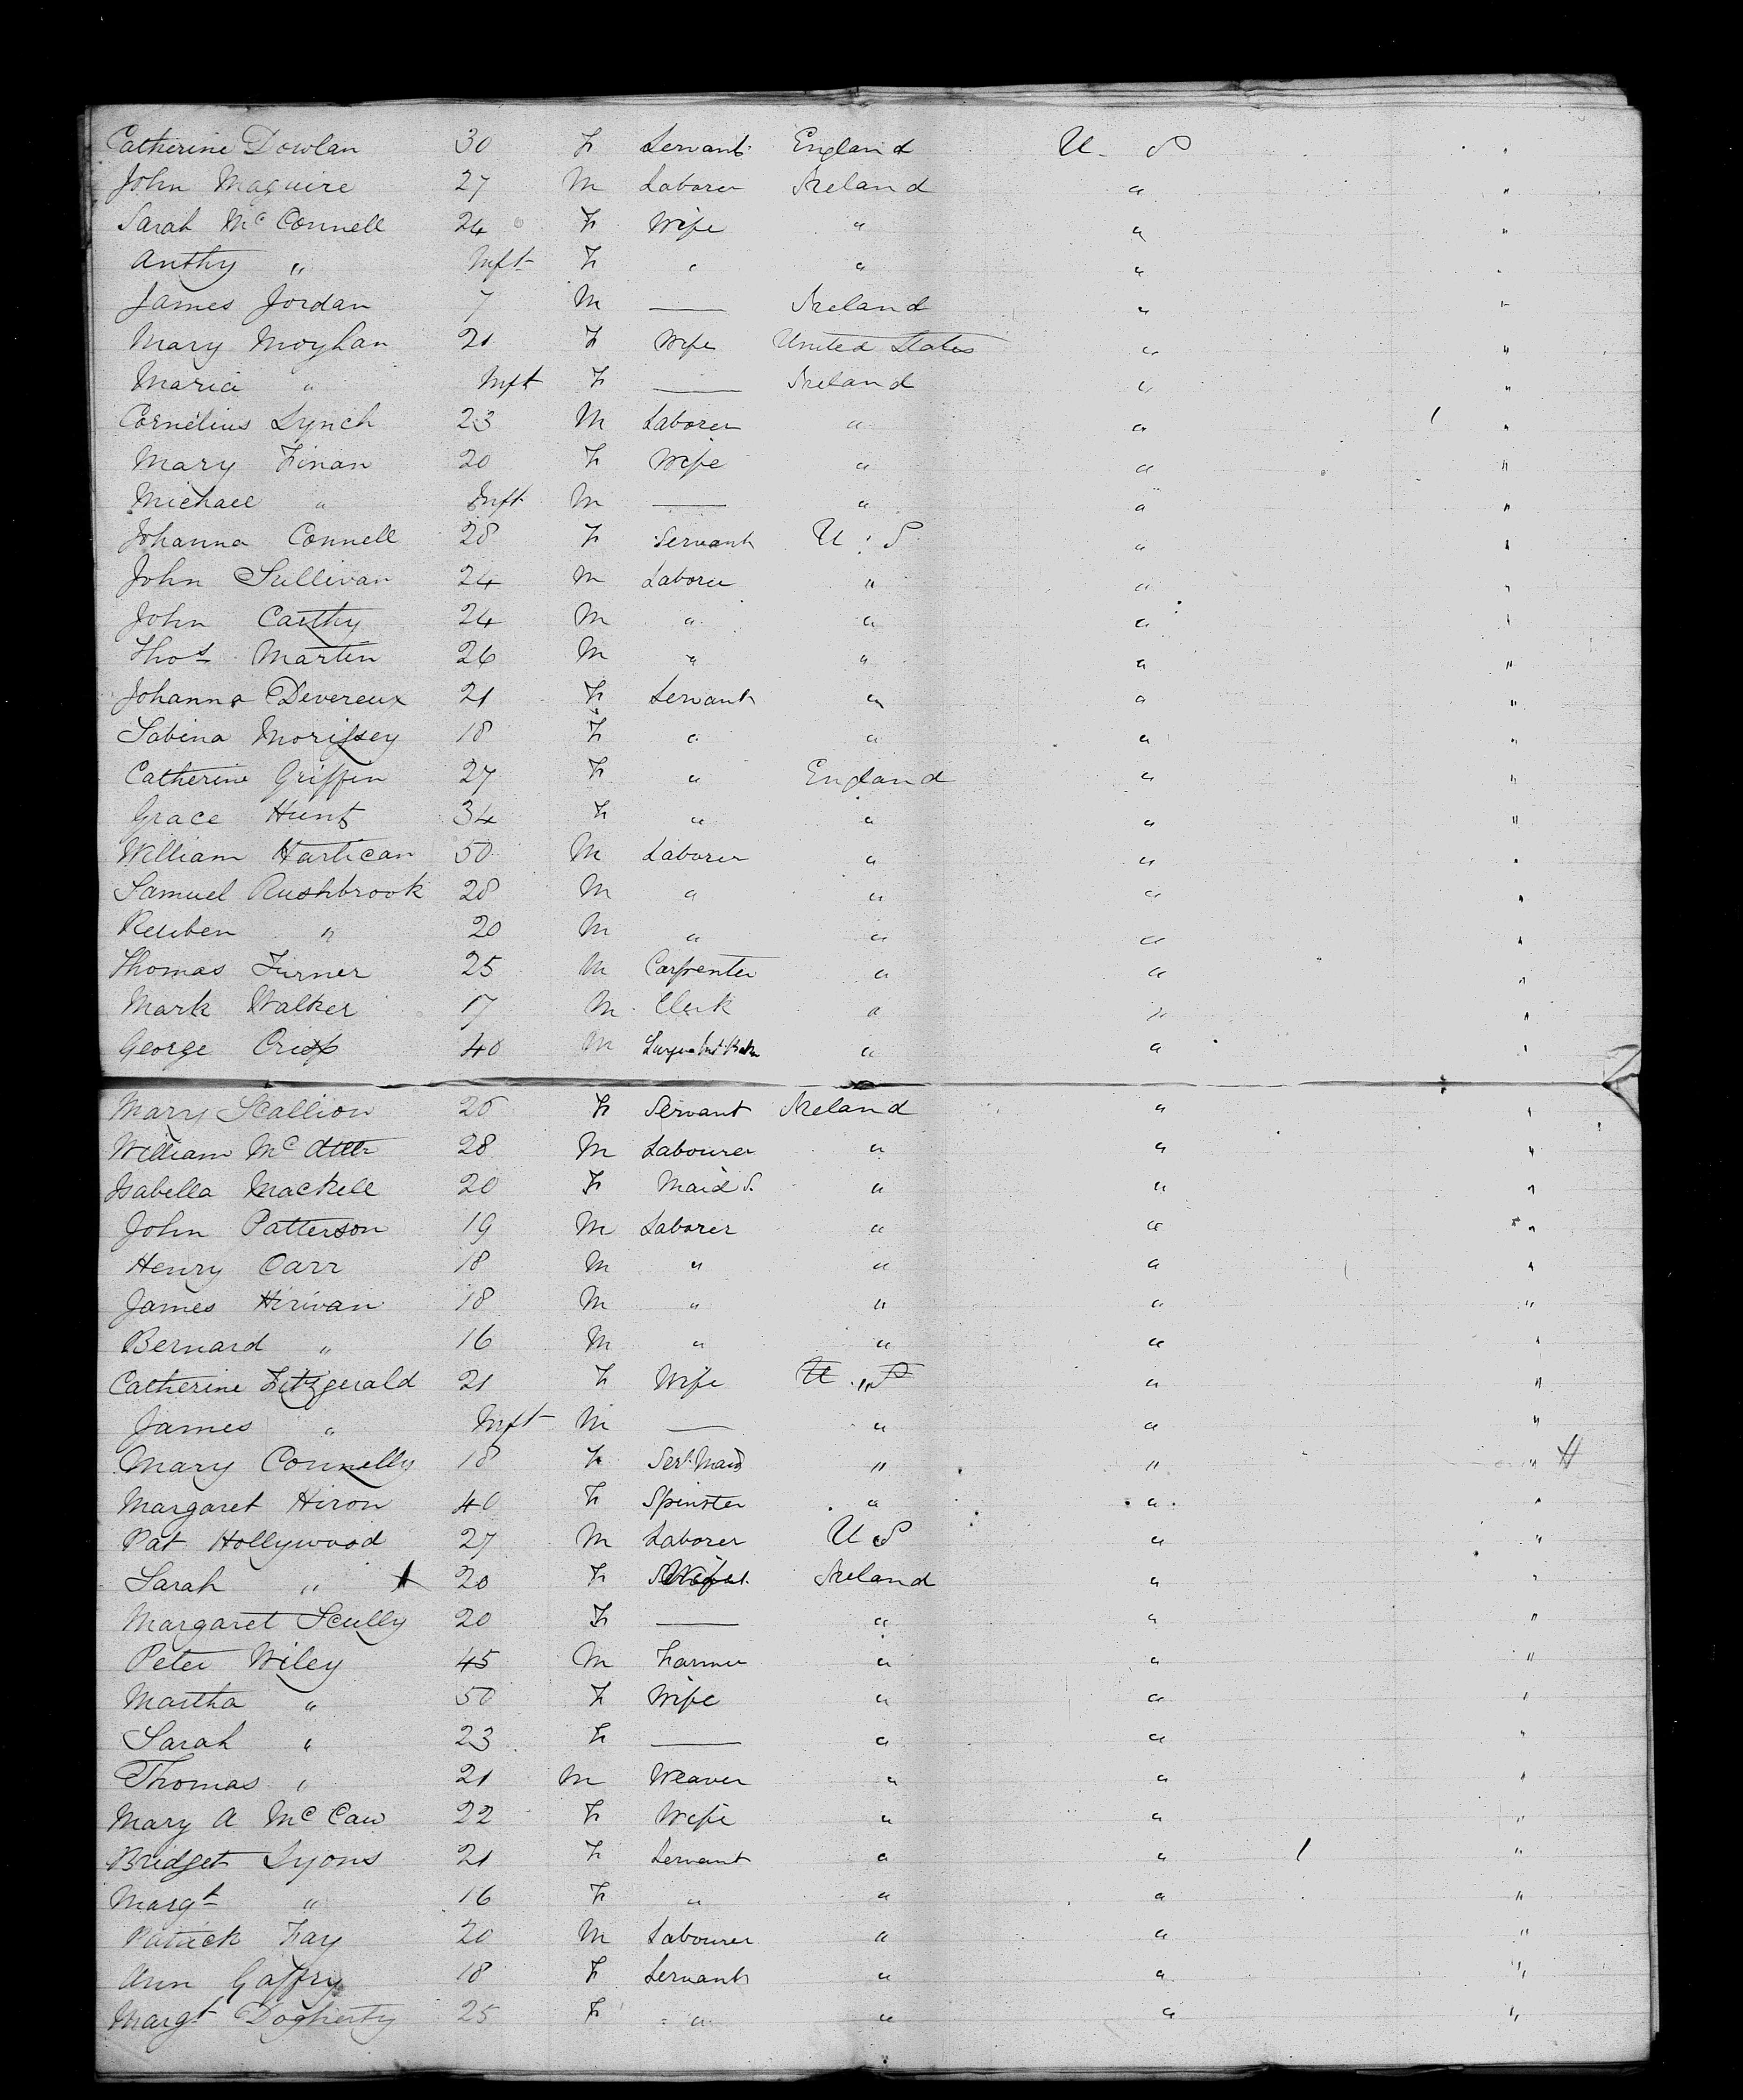 Catherine Dowlan 30 F Servant England U. S "
John Maguire 27 M Laborer Ireland " "
Sarah Mc Connell 24 F Wife " " "
Anthy " Inft F " " " "
James Jordan 7 M — Ireland " "
Mary Moyhan 21 F Wife United States " "
Maria " Inft F — Ireland " "
Cornelius Lynch 23 M Laborer " " / "
Mary Finan 20 F Wife " " "
Michael " Inft M — " " "
Johanna Connell 28 F Servant U. S " "
John Sullivan 24 M Laborer " " "
John Carthy 24 M " " " "
Thos Martin 26 M " " " "
Johanna Devereux 21 F Servant " " "
Sabina Morissey 18 F " " " "
Catherine Griffin 27 F " England " "
Grace Hunt 34 F " " " "
William Hartican 50 M Laborer " " "
Samuel Rushbrook 28 M " " " "
Reuben " 20 M " " " "
Thomas Turner 25 M Carpenter " " "
Mark Walker 17 M Clerk " " "
George Crisp 40 M " " "
Mary Scallion 26 F Servant Ireland " "
William Mc 28 M Labourer " " "
Isabella Mackell 20 F Maid S. " " "
John Patterson 19 M Laborer " " "
Henry Carr 18 M " " " "
James Hirivan 18 M " " " "
Bernard " 16 M " " " "
Catherine Fitzgerald 21 F Wife U. S " "
James " Inft M — " " "
Mary Connelly 18 F Servt Maid " " " H
Margaret Hiron 40 F Spinster " " "
Pat Hollywood 27 M Laborer U S " "
Sarah " 20 F Wife Ireland " "
Margaret Scully 20 F — " " "
Peter Wiley 45 M Farmer " " "
Martha " 50 F Wife " " "
Sarah " 23 F — " " "
Thomas " 21 M Weaver " " "
Mary A McCaw 22 F Wife " " "
Bridget Lyons 21 F Servant " " / "
Margt " 16 F " " " "
Patrick Fay 20 M Labourer " " "
Ann Gaffry 18 F Servant " " "
Margt Dogherty 25 F " " " "